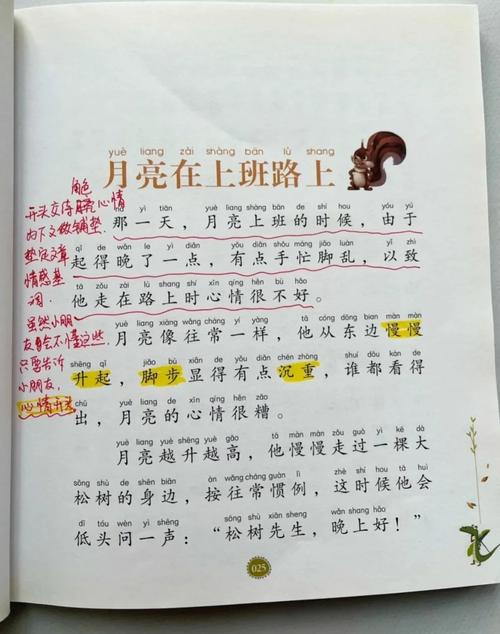 yuè liang zài shàng bān lù shang
月亮在上班路上
角色
开头交待晚心情
为下文做铺垫.
垫定文章
情感基
调.
虽然小朋
友自会不懂这些.
只要告诉
小朋友,
心情开头
yì tiān yuè liang shàng bān de shí hou yóu yú
那一天，月亮上班的时候，由于
qǐ de wǎn le yì diǎn yǒu diǎn shǒu máng jiǎo luàn yǐ zhì
起得晚了一点，有点手忙脚乱，以致
他走在路上时心情很不好。
yuè liang xiàng wǎng cháng yí yàng tā cóng dōng bian màn màn
月亮像往常一样，他从东边慢慢
shēng qǐ jiǎo bù xiǎn de yǒu diǎn chén zhòng shuí dōu kàn de
升起，脚步显得有点沉重，谁都看得
chū yuè liang de xīn qíng hěn zāo
出，月亮的心情很糟。
yuè liang yuè shēng yuè gāo tā màn màn zǒu guò yì kē dà
月亮越升越高，他慢慢走过一棵大
sōng shù de shēn biān àn wǎng cháng guàn lì zhè shí hou tā huì
松树的身边，按往常惯例，这时候他会
dī tóu wèn yì shēng sōng shù xiān sheng wǎn shang hǎo
低头问一声：“松树先生，晚上好！”
025